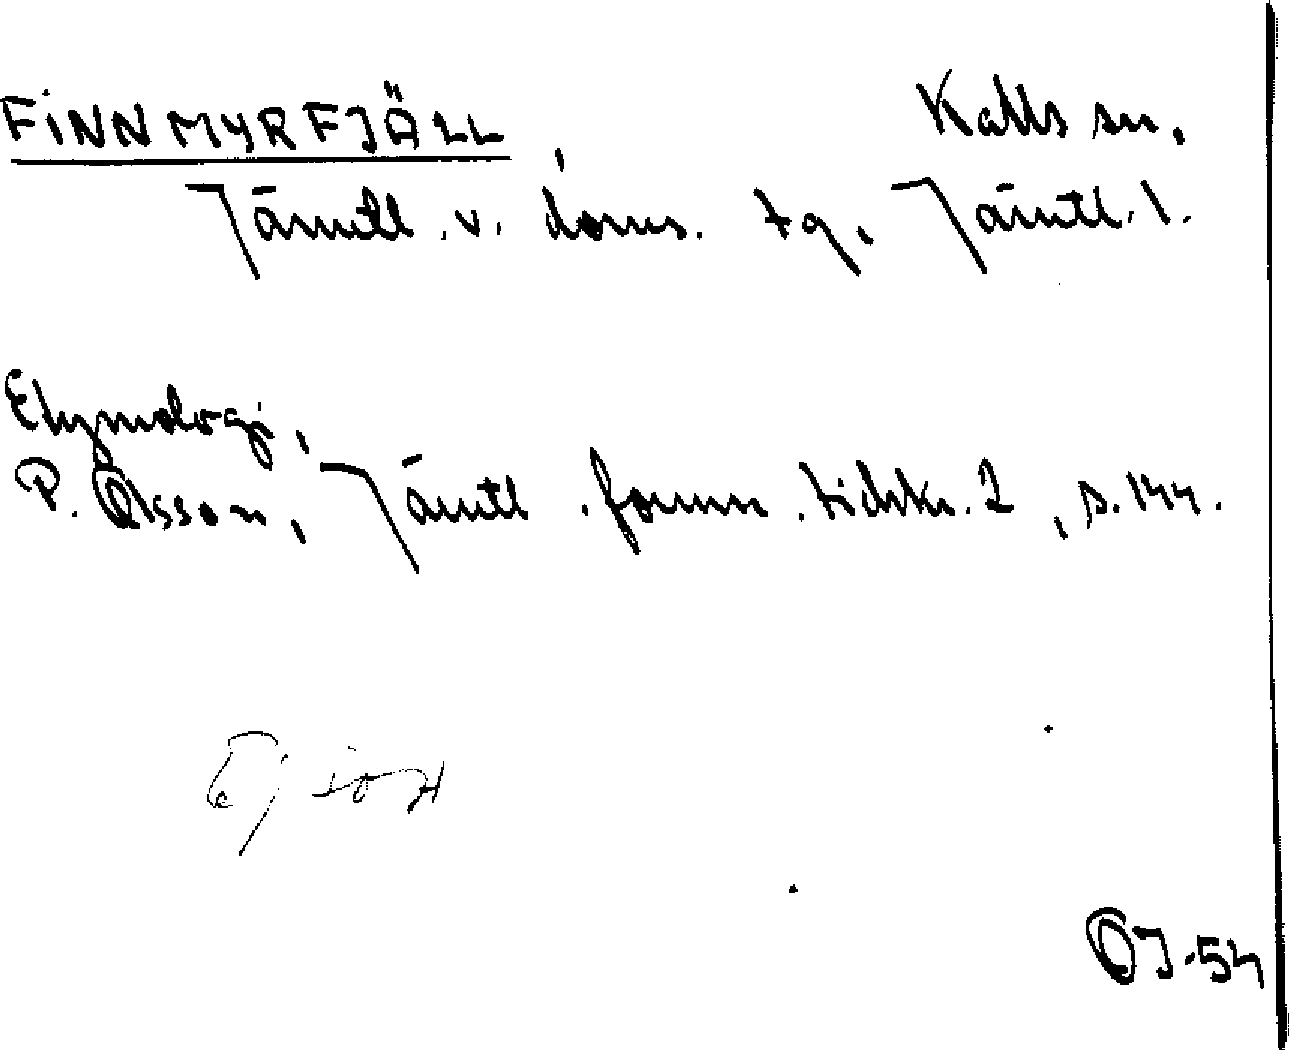 FINNMYRFJÄLL Kalls sn,
Jämtl. v. doms. tg, Jämtl. l.
Etymologi,
P. Olsson, Jämtl. fornm. tidskr. 2, s. 144.
Ej
OJ-54